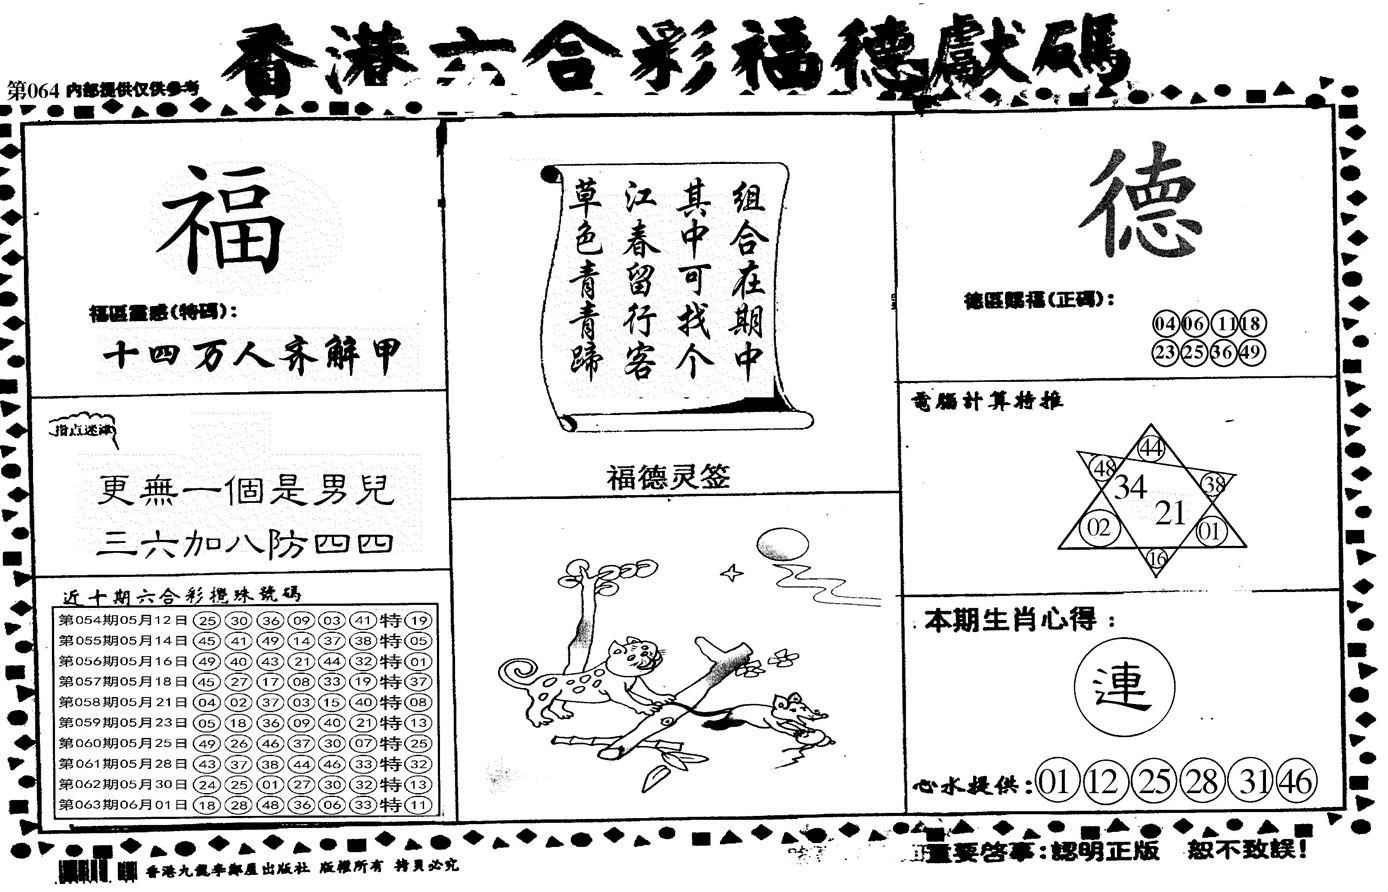 香港六合彩福德獻碼
第064 内部提供仅供参考
福
福區靈感(特碼):
十四万人齐解甲
指点迷津
更無一個是男兒
三六加八防四四
近十期六合彩攪珠號碼
第054期05月12日 25 30 36 09 03 41 特 19
第055期05月14日 45 41 49 14 37 38 特 05
第056期05月16日 49 40 43 21 44 32 特 01
第057期05月18日 45 27 17 08 33 19 特 37
第058期05月21日 04 02 37 03 15 40 特 08
第059期05月23日 05 18 36 09 40 21 特 13
第060期05月25日 49 26 46 37 30 07 特 25
第061期05月28日 43 37 38 44 46 33 特 32
第062期05月30日 24 25 01 27 30 32 特 13
第063期06月01日 18 28 48 36 06 33 特 11
组合在期中
其中可找个
江春留行客
草色青青蹄
福德灵签
德
德區賜福(正碼):
04 06 11 18
23 25 36 49
電腦計算特推
44
48 38
34
21
02 01
16
本期生肖心得:
連
心水提供: 01 12 25 28 31 46
重要啓事:認明正版 恕不致誤!
版權所有 拷貝必究